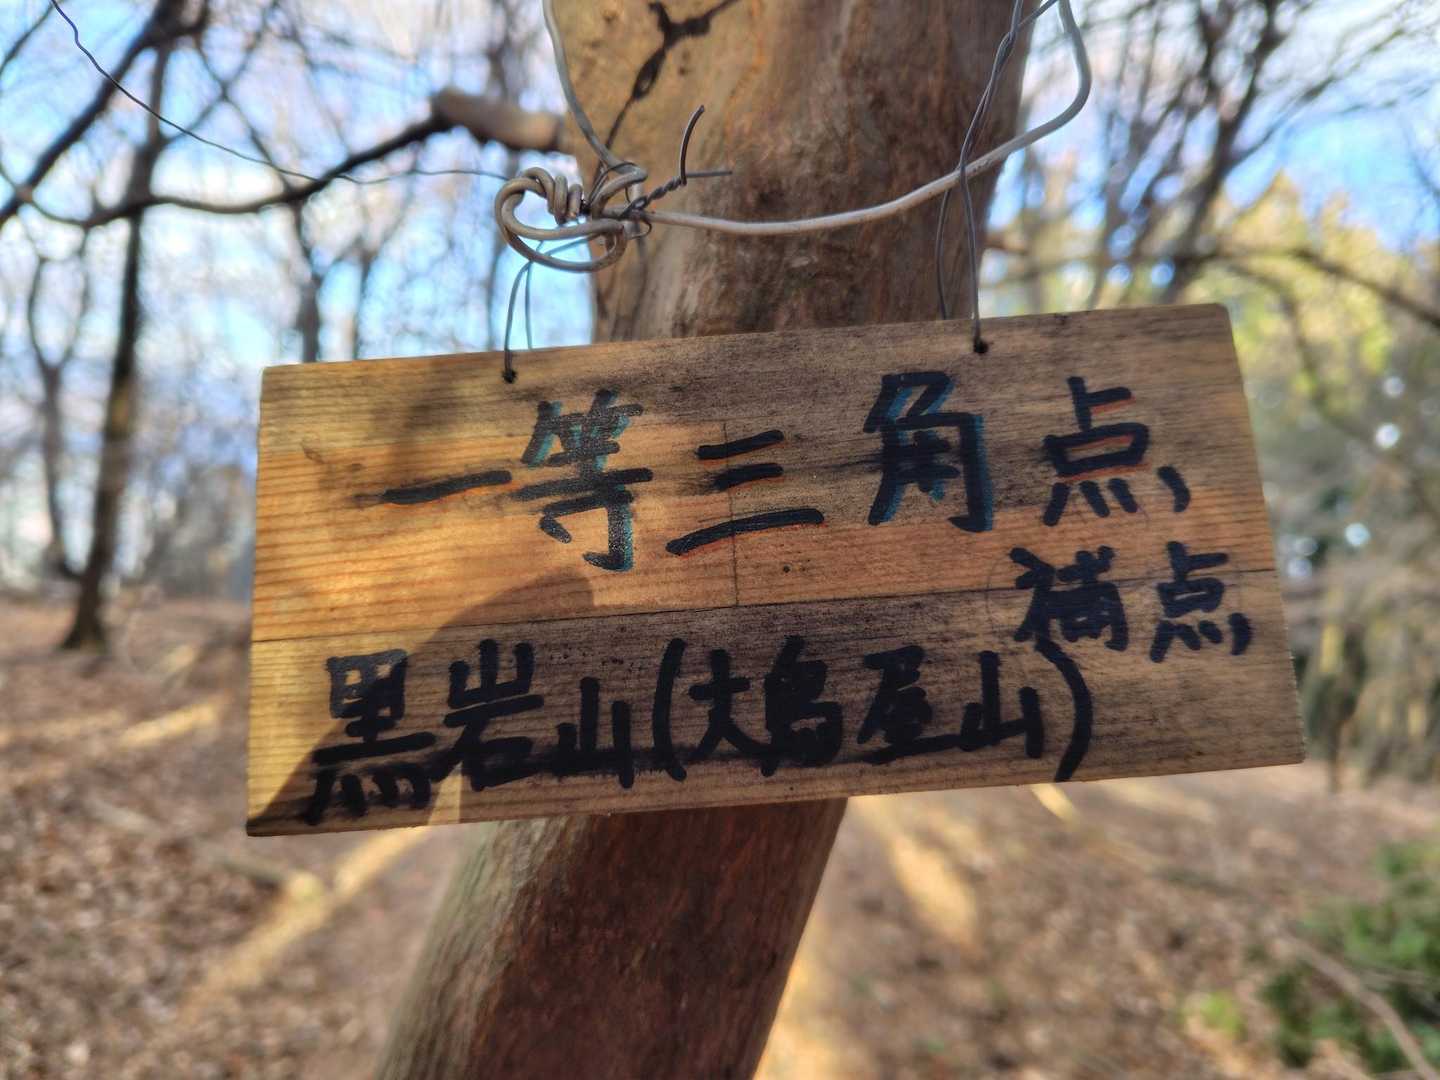 一等三角点
補点
黒岩山(大鳥屋山)